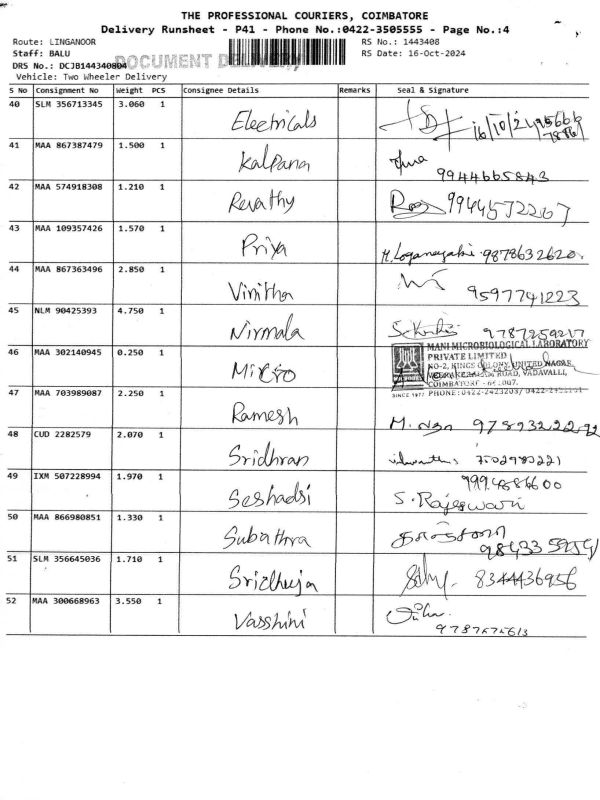 THE PROFESSIONAL COURIERS, COIMBATORE
Delivery Runsheet - P41 - Phone No.:0422-3505555 - Page No.:4
Route: LINGANOOR RS No.: 1443408
Staff: BALU RS Date: 16-Oct-2024
DRS No.: DCJB144340804 DOCUMENT DELIVERY
Vehicle: Two Wheeler Delivery
S No Consignment No Weight PCS Consignee Details Remarks Seal & Signature
40 SLM 356713345 3.060 1 Electricals 16/10/24
41 MAA 867387479 1.500 1 Kalpana 9944665843
42 MAA 574918308 1.210 1 Revathy 9944572207
43 MAA 109357426 1.570 1 Priya M. Loganayaki 9878632620
44 MAA 867363496 2.850 1 Vinitha 9597741223
45 NLM 90425393 4.750 1 Nirmala 9787259217
46 MAA 302140945 0.250 1 Micro
MANI MICROBIOLOGICAL LABORATORY
PRIVATE LIMITED
NO-2, KINGS COLONY, UNITED NAGAR,
ROAD, VADAVALLI,
COIMBATORE - 641007.
SINCE 1977 PHONE: 0422-2423203/
47 MAA 703989087 2.250 1 Ramesh M. 9789322292
48 CUD 2282579 2.070 1 Sridhran 7502980221
49 IXM 507228994 1.970 1 Seshadsi
S. Rajeswari
50 MAA 866980851 1.330 1 Subathra
51 SLM 356645036 1.710 1 Sridhuja 8344436956
52 MAA 300668963 3.550 1 Vasshini
9787575613